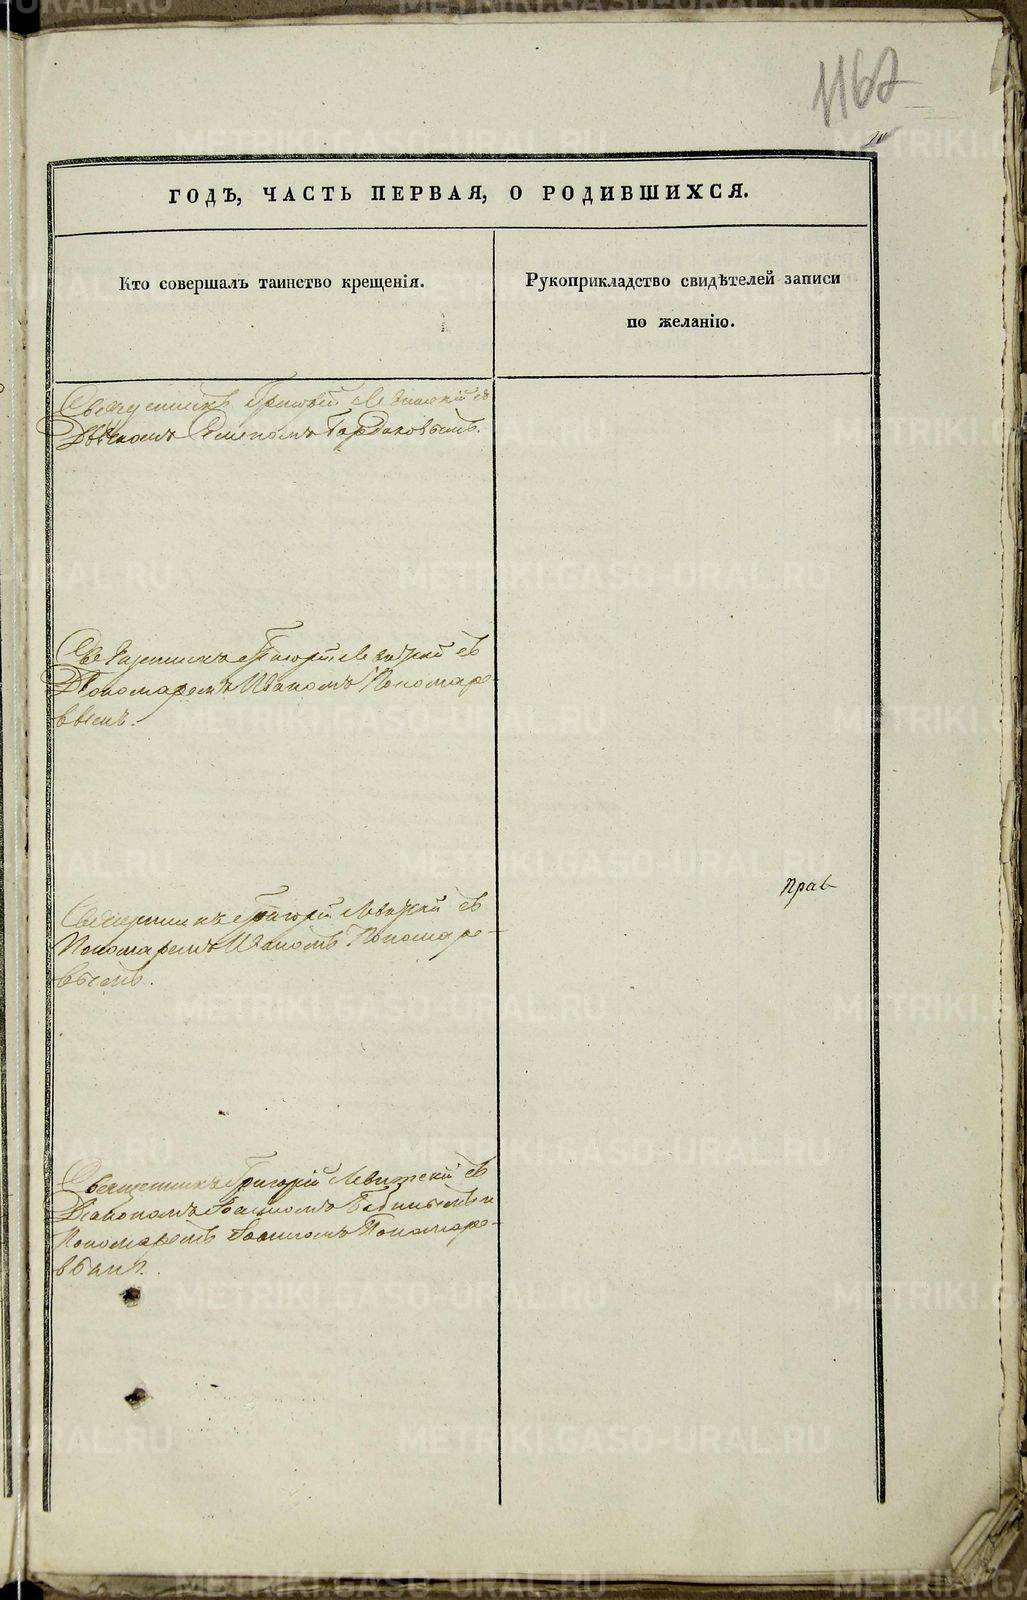 1167
ГОДЪ, ЧАСТЬ ПЕРВАЯ, О РОДИВШИХСЯ.
Кто совершалъ таинство крещенія.
Рукоприкладство свидѣтелей записи
по желанію.
Священникъ Григорій Левитскій съ
Дьячкомъ Семеномъ
Священникъ Григорій Левитскій съ
Пономаремъ Иваномъ Пономаре-
вымъ.
Прав-
Священникъ Григорій Левитскій съ
Пономаремъ Иваномъ Пономаре-
вымъ.
Священникъ Григорій Левитскій съ
Діакономъ Іоанномъ Бабинымъ и
Пономаремъ Іоанномъ Пономаре-
вымъ.
METRIKI.GASO-URAL.RU